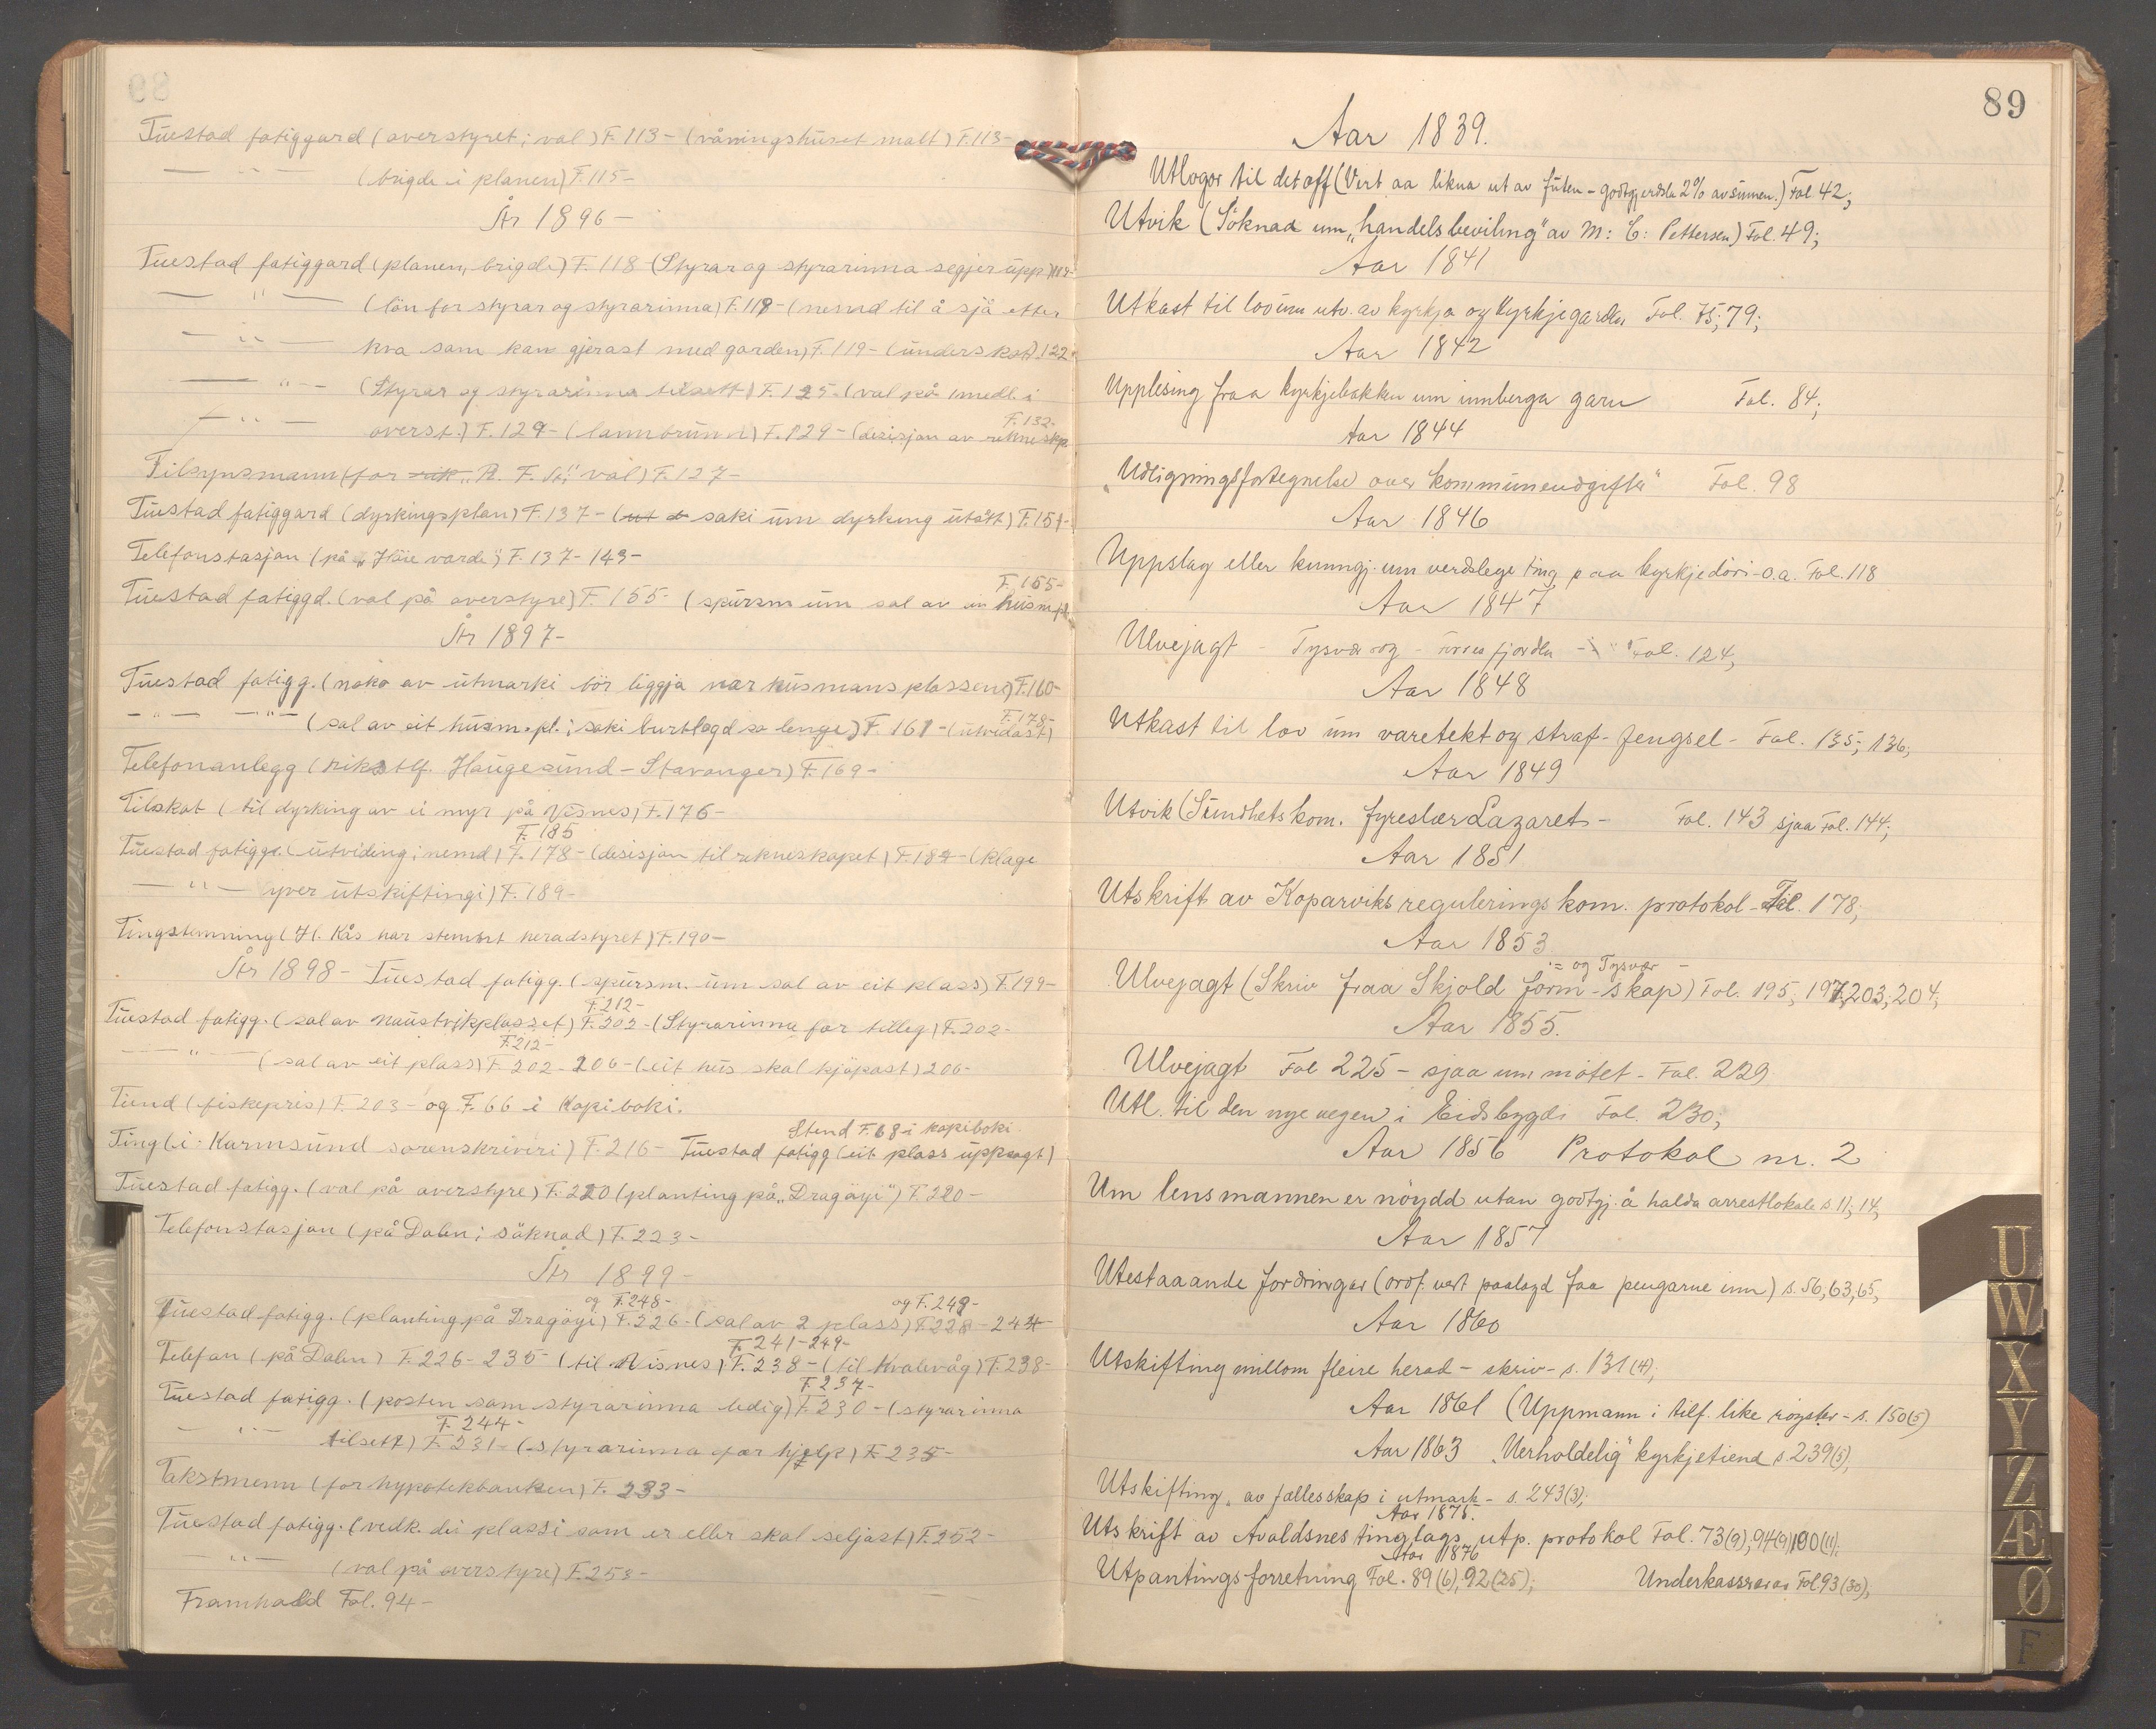 Tuestad fatiggard (overstyret; val) F. 113- (våningshuset malt) F. 113-
— " — (brigde i planen) F. 115-
År 1896-
Tuestad fatiggard (planen, brigde) F. 118 (Styrar og styrarinna segjer upp)
— " — (lön for styrar og styrarinna) F. 118- (nemnd til å sjå etter
— " — kva som kan gjerast med garden) F. 119- (underskot) 122-
— " — (Styrar og styrarinna tilsett) F. 125- (val på 1 medl. i
F. 132-
— " — overst.) F. 129- (lannbrunn) F. 129- (desisjon av rekneskp
Tilsynsmann (for R. F. St." val) F. 127-
Tuestad fatiggard (dyrkingsplan) F. 137- (saki um dyrking utsett) F. 151-
Telefonstasjon (på "Höie varde") F. 137- 143-
F. 155-
Tuestad fatiggd. (val på overstyre) F. 155- (spursm um sal av ein husm.pl.
År 1897-
Tuestad fatigg. (noko av utmarki bör liggja nær husmansplassene) F. 160-
F. 178-
— " — — " — (sal av eit husm.pl.; saki burtlagd so lenge) F. 161- (utvidast)
Telefonanlegg (rikstlf. Haugesund-Stavanger) F. 169-
Tilskot (til dyrking av ei myr på Visnes) F. 176-
F. 185
Tuestad fatigg. (utviding; nemd) F. 178- (desisjon til rekneskapet) F. 182- (klage
— " — yver utskiftingi) F. 189-
Tingstemning (H. Kås har stemnt heradstyret) F. 190-
År 1898- Tuestad fatigg. (spursm. um sal av eit plass) F. 199-
F. 212-
Tuestad fatigg. (sal av Naustvikplasset) F. 202- (Styrarinna fær tillegg) F. 202-
F. 212-
— " — (sal av eit plass) F. 202- 206- (eit hus skal kjöpast) 206-
Tiend (fiskepris) F. 203- og F. 66 i Kopiboki.
Stend F. 68 i kopiboki
Ting (i Karmsund sorenskriveri) F. 216- Tuestad fatigg (eit plass uppsagt)
Tuestad fatigg. (val på overstyre) F. 220 (planting på "Dragöyi") F. 220-
Telefonstasjon (på Dalen; söknad) F. 223-
År 1899-
og F. 248- og F. 249-
Tuestad fatigg. (planting på Dragöyi) F. 226- (sal av 2 plass) F. 228- 244
F. 241-249-
Telefon (på Dalen) F. 226- 235- (til Visnes) F. 238- (til Kvalavåg) F. 238-
F. 237-
Tuestad fatigg. (posten som styrarinna ledig) F. 230- (styrarinna
F. 244-
— " — tilsett) F. 231- (styrarinna fær hjelp) F. 235-
Takstmenn (for hypotekbanken) F. 233-
Tuestad fatigg. (vedk. dei plassi som er eller skal seljast) F. 252-
— " — (val på overstyre) F. 253-
Framhald Fol. 94-
89
Aar 1839.
Utlogor til det off (Vert aa likna ut av futen - godtgjerdsla 2% av sumen.) Fol 42;
Utvik (Söknad um "handelsbeviling" av M: C: Pettersen) Fol. 49;
Aar 1841
Utkast til lov um utv. av kyrkja og kyrkjegarden Fol. 75; 79;
Aar 1842
Upplesing fraa kyrkjebakken um innberga garn Fol. 84;
Aar 1844
"Udligningsfortegnelse over kommuneudgifter" Fol. 98
Aar 1846
Uppslag eller kunngj. um verdslege ting paa kyrkjedöri - o.a. Fol. 118
Aar 1847
Ulvejagt - Tysvær og - fjorden - Fol. 124,
Aar 1848
Utkast til lov um varetekt og straf-fengsel - Fol. 135; 136;
Aar 1849
Utvik (Sundhetskom. fyreslær Lazaret - Fol. 143 sjaa Fol. 144;
Aar 1851
Utskrift av Koparviks regulerings kom. protokol - Fol. 178;
Aar 1853
og Tysvær -
Ulvejagt (Skriv fraa Skjold form-skap) Fol. 195, 197, 203, 204,
Aar 1855.
Ulvejagt Fol 225 - sjaa um mötet - Fol. 229
Utl. til den nye vegen i Eidsbygdi Fol. 230;
Aar 1856 Protokol nr. 2
Um lensmannen er nöydd utan godtgj. å halda arrestlokale s. 11; 14,
Aar 1857
Utestaaande fordringar (ordf. vert paalagd faa pengarne inn) s. 56, 63, 65,
Aar 1860
Utskifting millom fleire herad - skriv - s. 131 (4);
Aar 1861 (Uppmann i tilf. like röyster - s. 150(5)
Aar 1863 "Uerholdelig" kyrkjetiend s. 239(5),
Utskifting av fællesskap i utmark - s. 243(3);
Aar 1875.
Utskrift av Avaldsnes tinglags utp. protokol Fol. 73(9); 94(9) 100(11);
Aar 1876
Utpantingsforretning Fol. 89(6), 92(25); Underkasserar Fol 93(30),
U
W
X
Y
Z
Æ
Ø
F